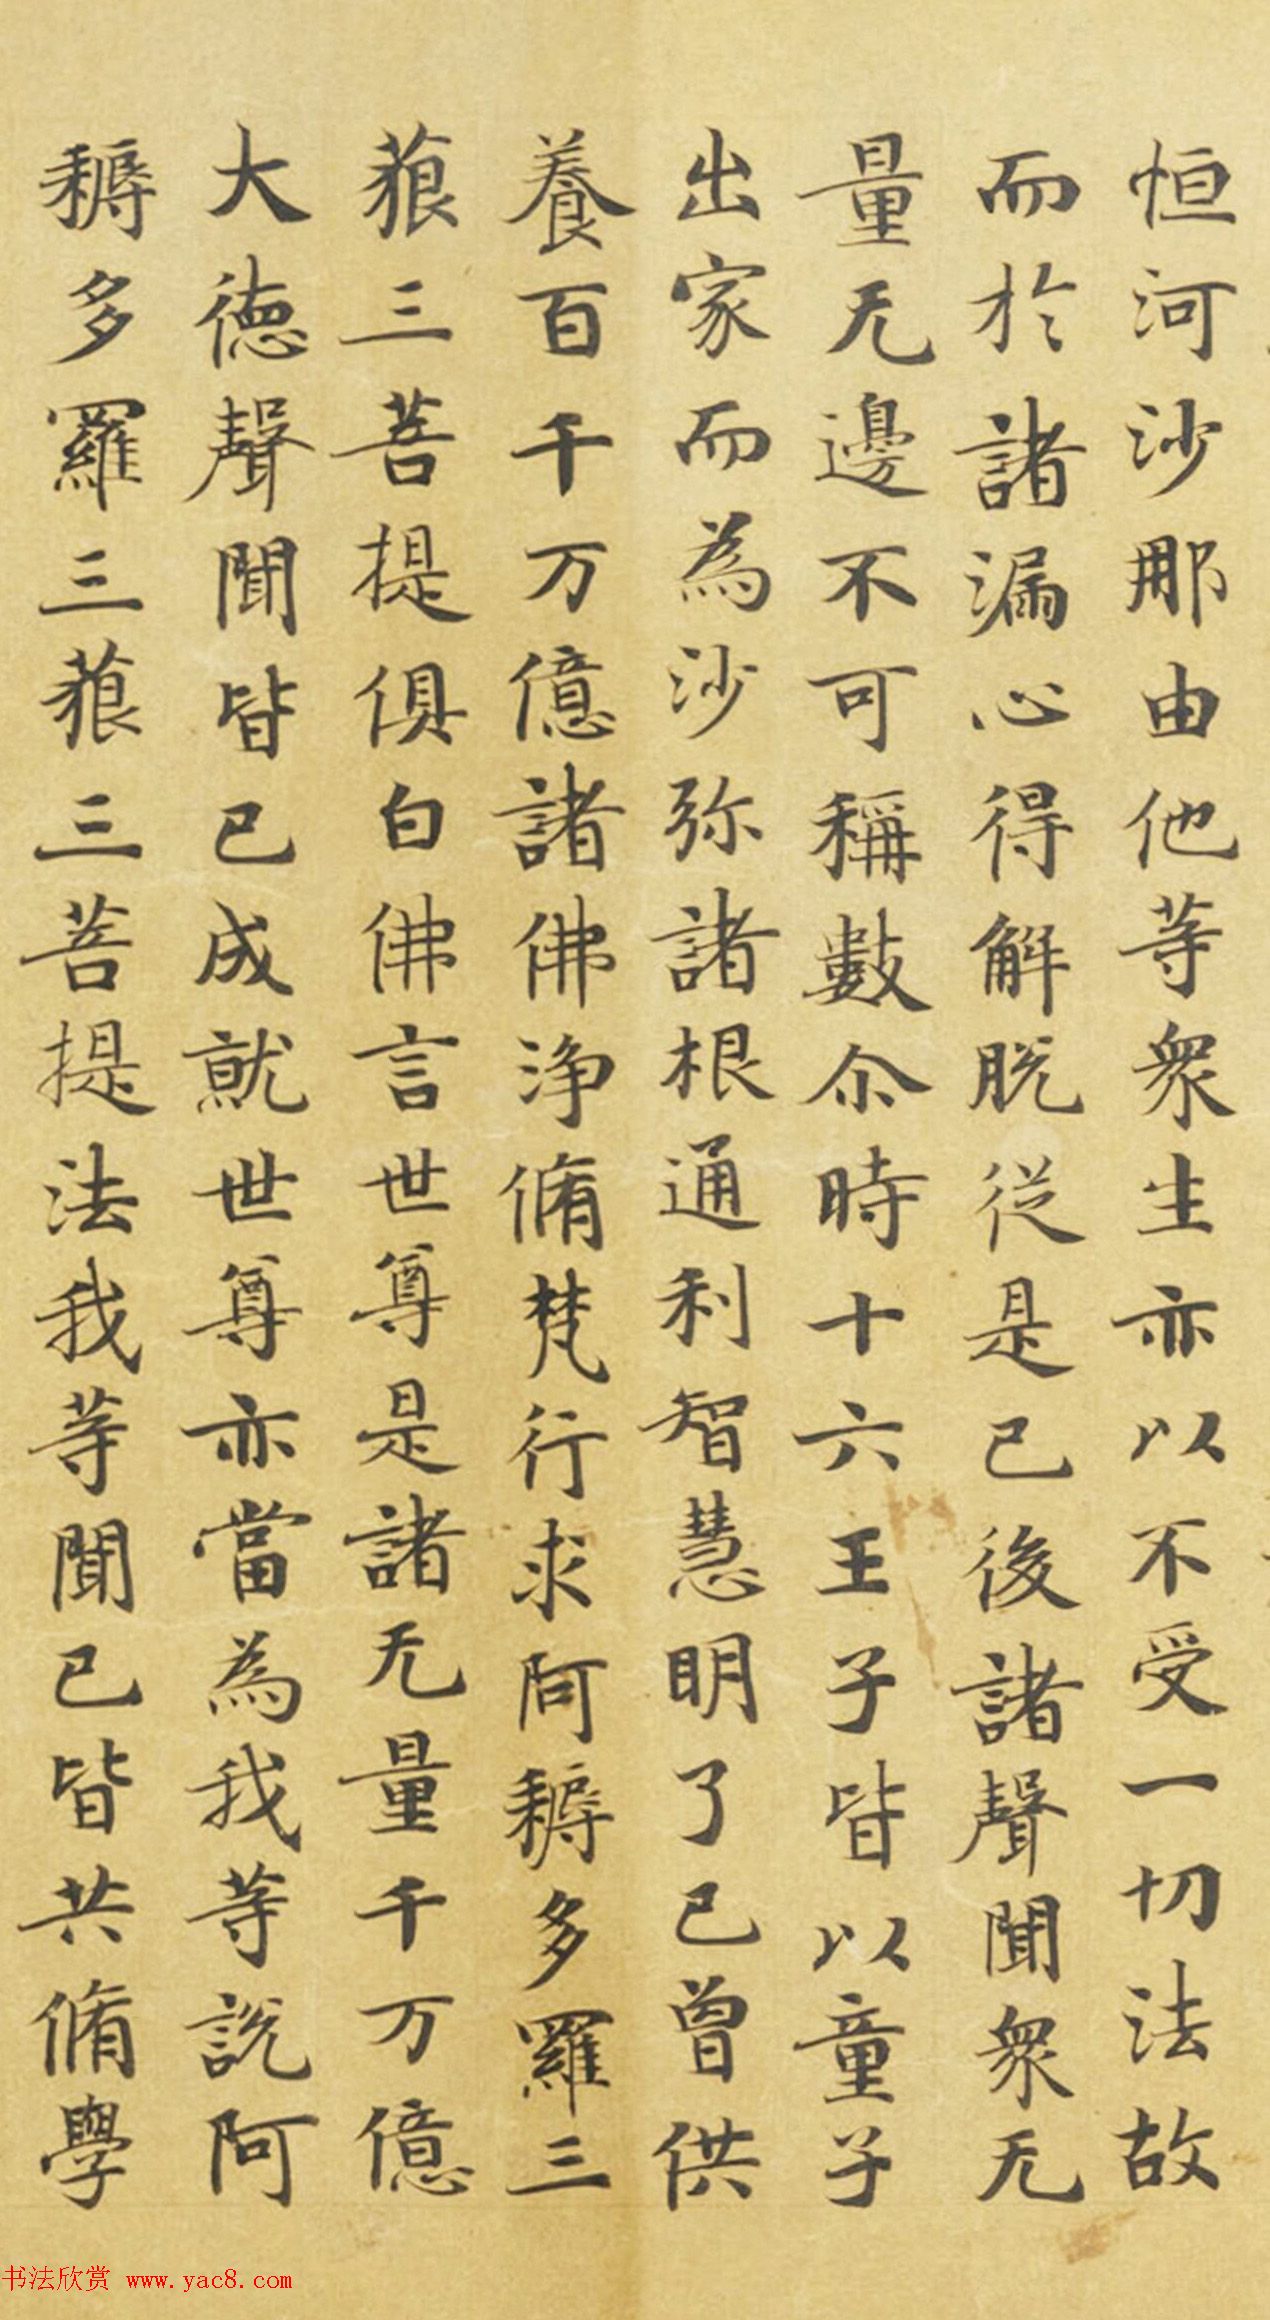 恒河沙那由他等衆生亦以不受一切法故
而於諸漏心得解脫從是已後諸聲聞衆无
量无邊不可稱數尒時十六王子皆以童子
出家而為沙弥諸根通利智慧明了已曾供
養百千万億諸佛淨脩梵行求阿耨多羅三
藐三菩提俱白佛言世尊是諸无量千万億
大德聲聞皆已成就世尊亦當為我等說阿
耨多羅三藐三菩提法我等聞已皆共脩學
书法欣赏 www.yac8.com